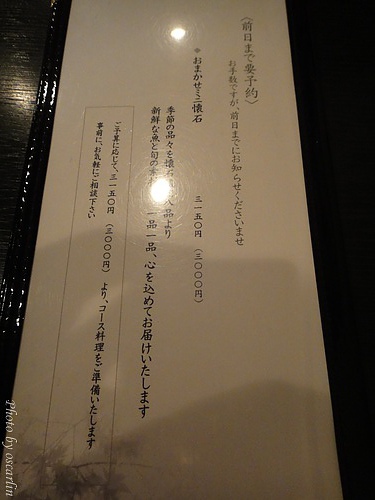 〈前日まで要予約〉
お手数ですが、前日までにお知らせくださいませ
＊おまかせミニ懐石 三一五〇円 （三〇〇〇円）
季節の品々を懐石 品より
新鮮な魚と旬の 一品一品、心を込めてお届けいたします
ご予算に応じて、三一五〇円 （三〇〇〇円） より、コース料理をご準備いたします
事前に、お気軽にご相談下さい
Photo by oscarlin